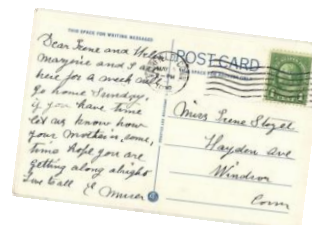 THIS SPACE FOR WRITING MESSAGES
Dear Irene and Helen
Marjorie and I are
here for a week will
go home Sunday,
if you have time
let us know how
your Mother is, some
time hope you are
getting along alright
Love to all E
POST CARD
Miss Irene
Hayden Ave
Windsor
Conn